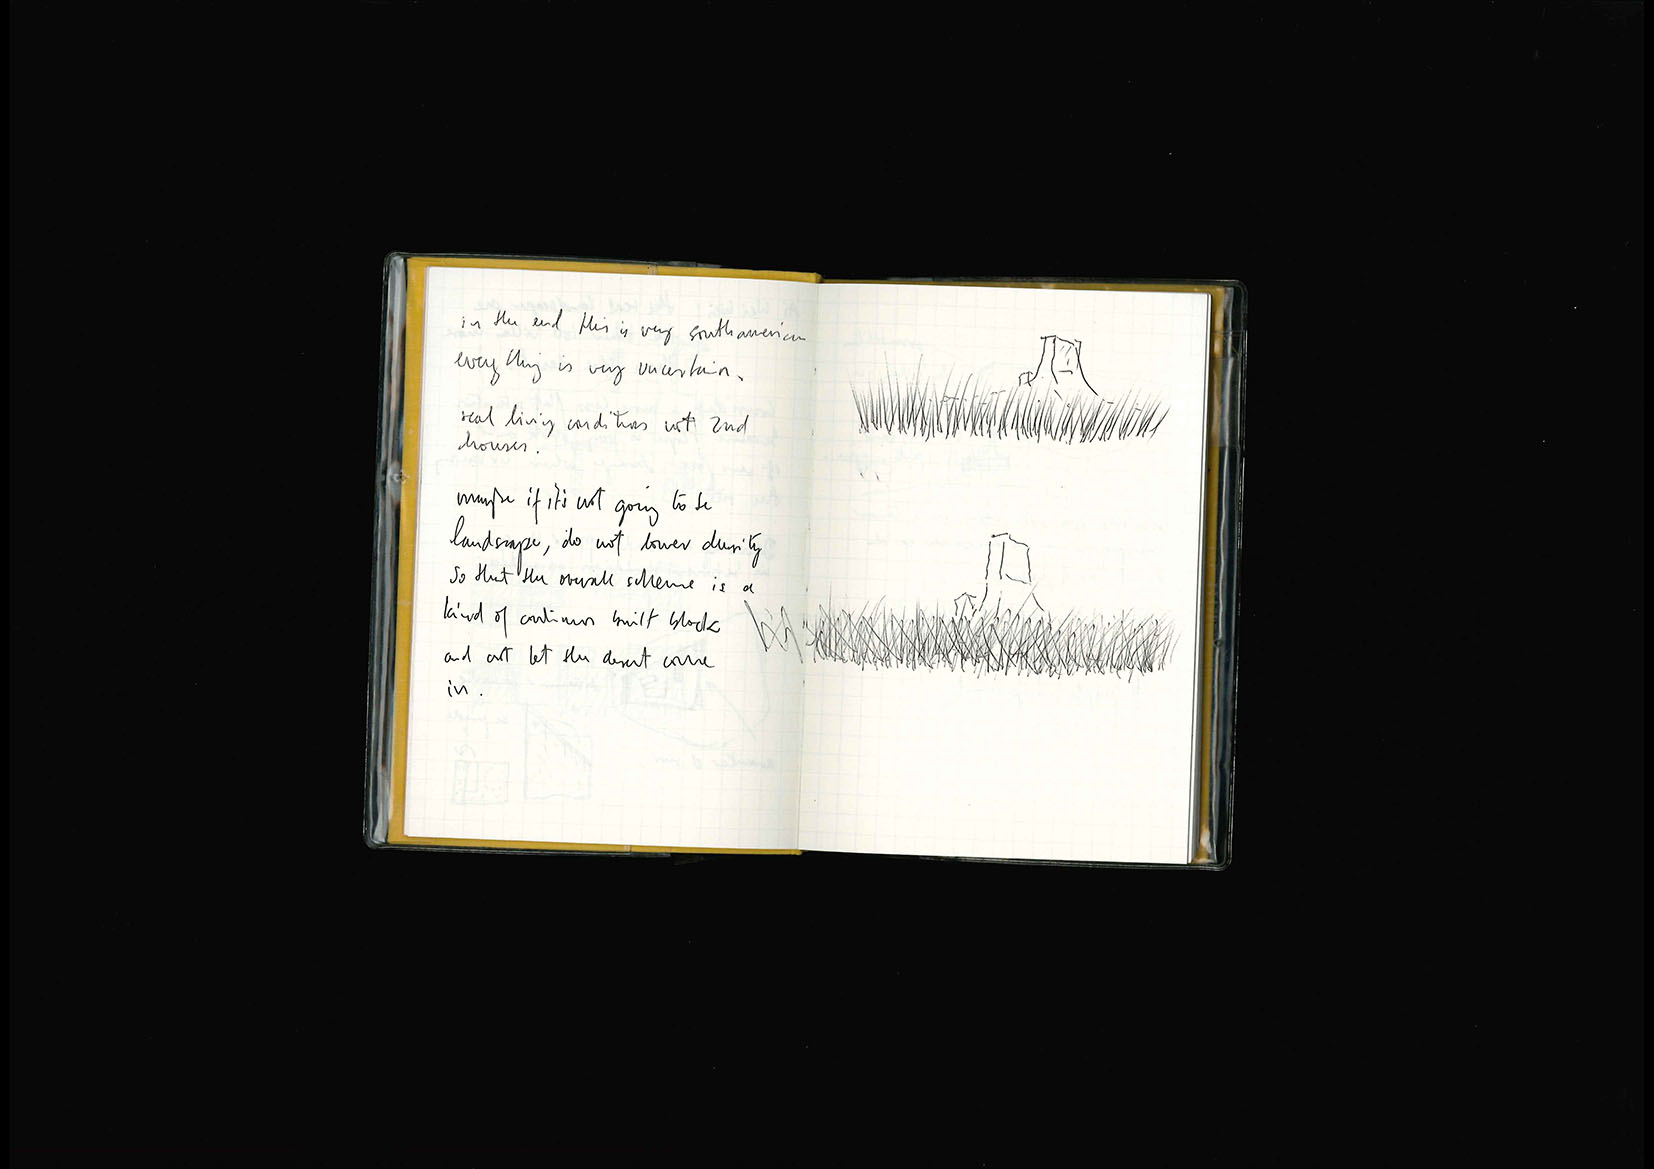 in the end this is very southamerican
everything is very uncertain.
real living conditions not 2nd
houses.
maybe if it's not going to be
landscape, do not lower density
so that the overall scheme is a
kind of continuos built block
and not let the desert come
in.